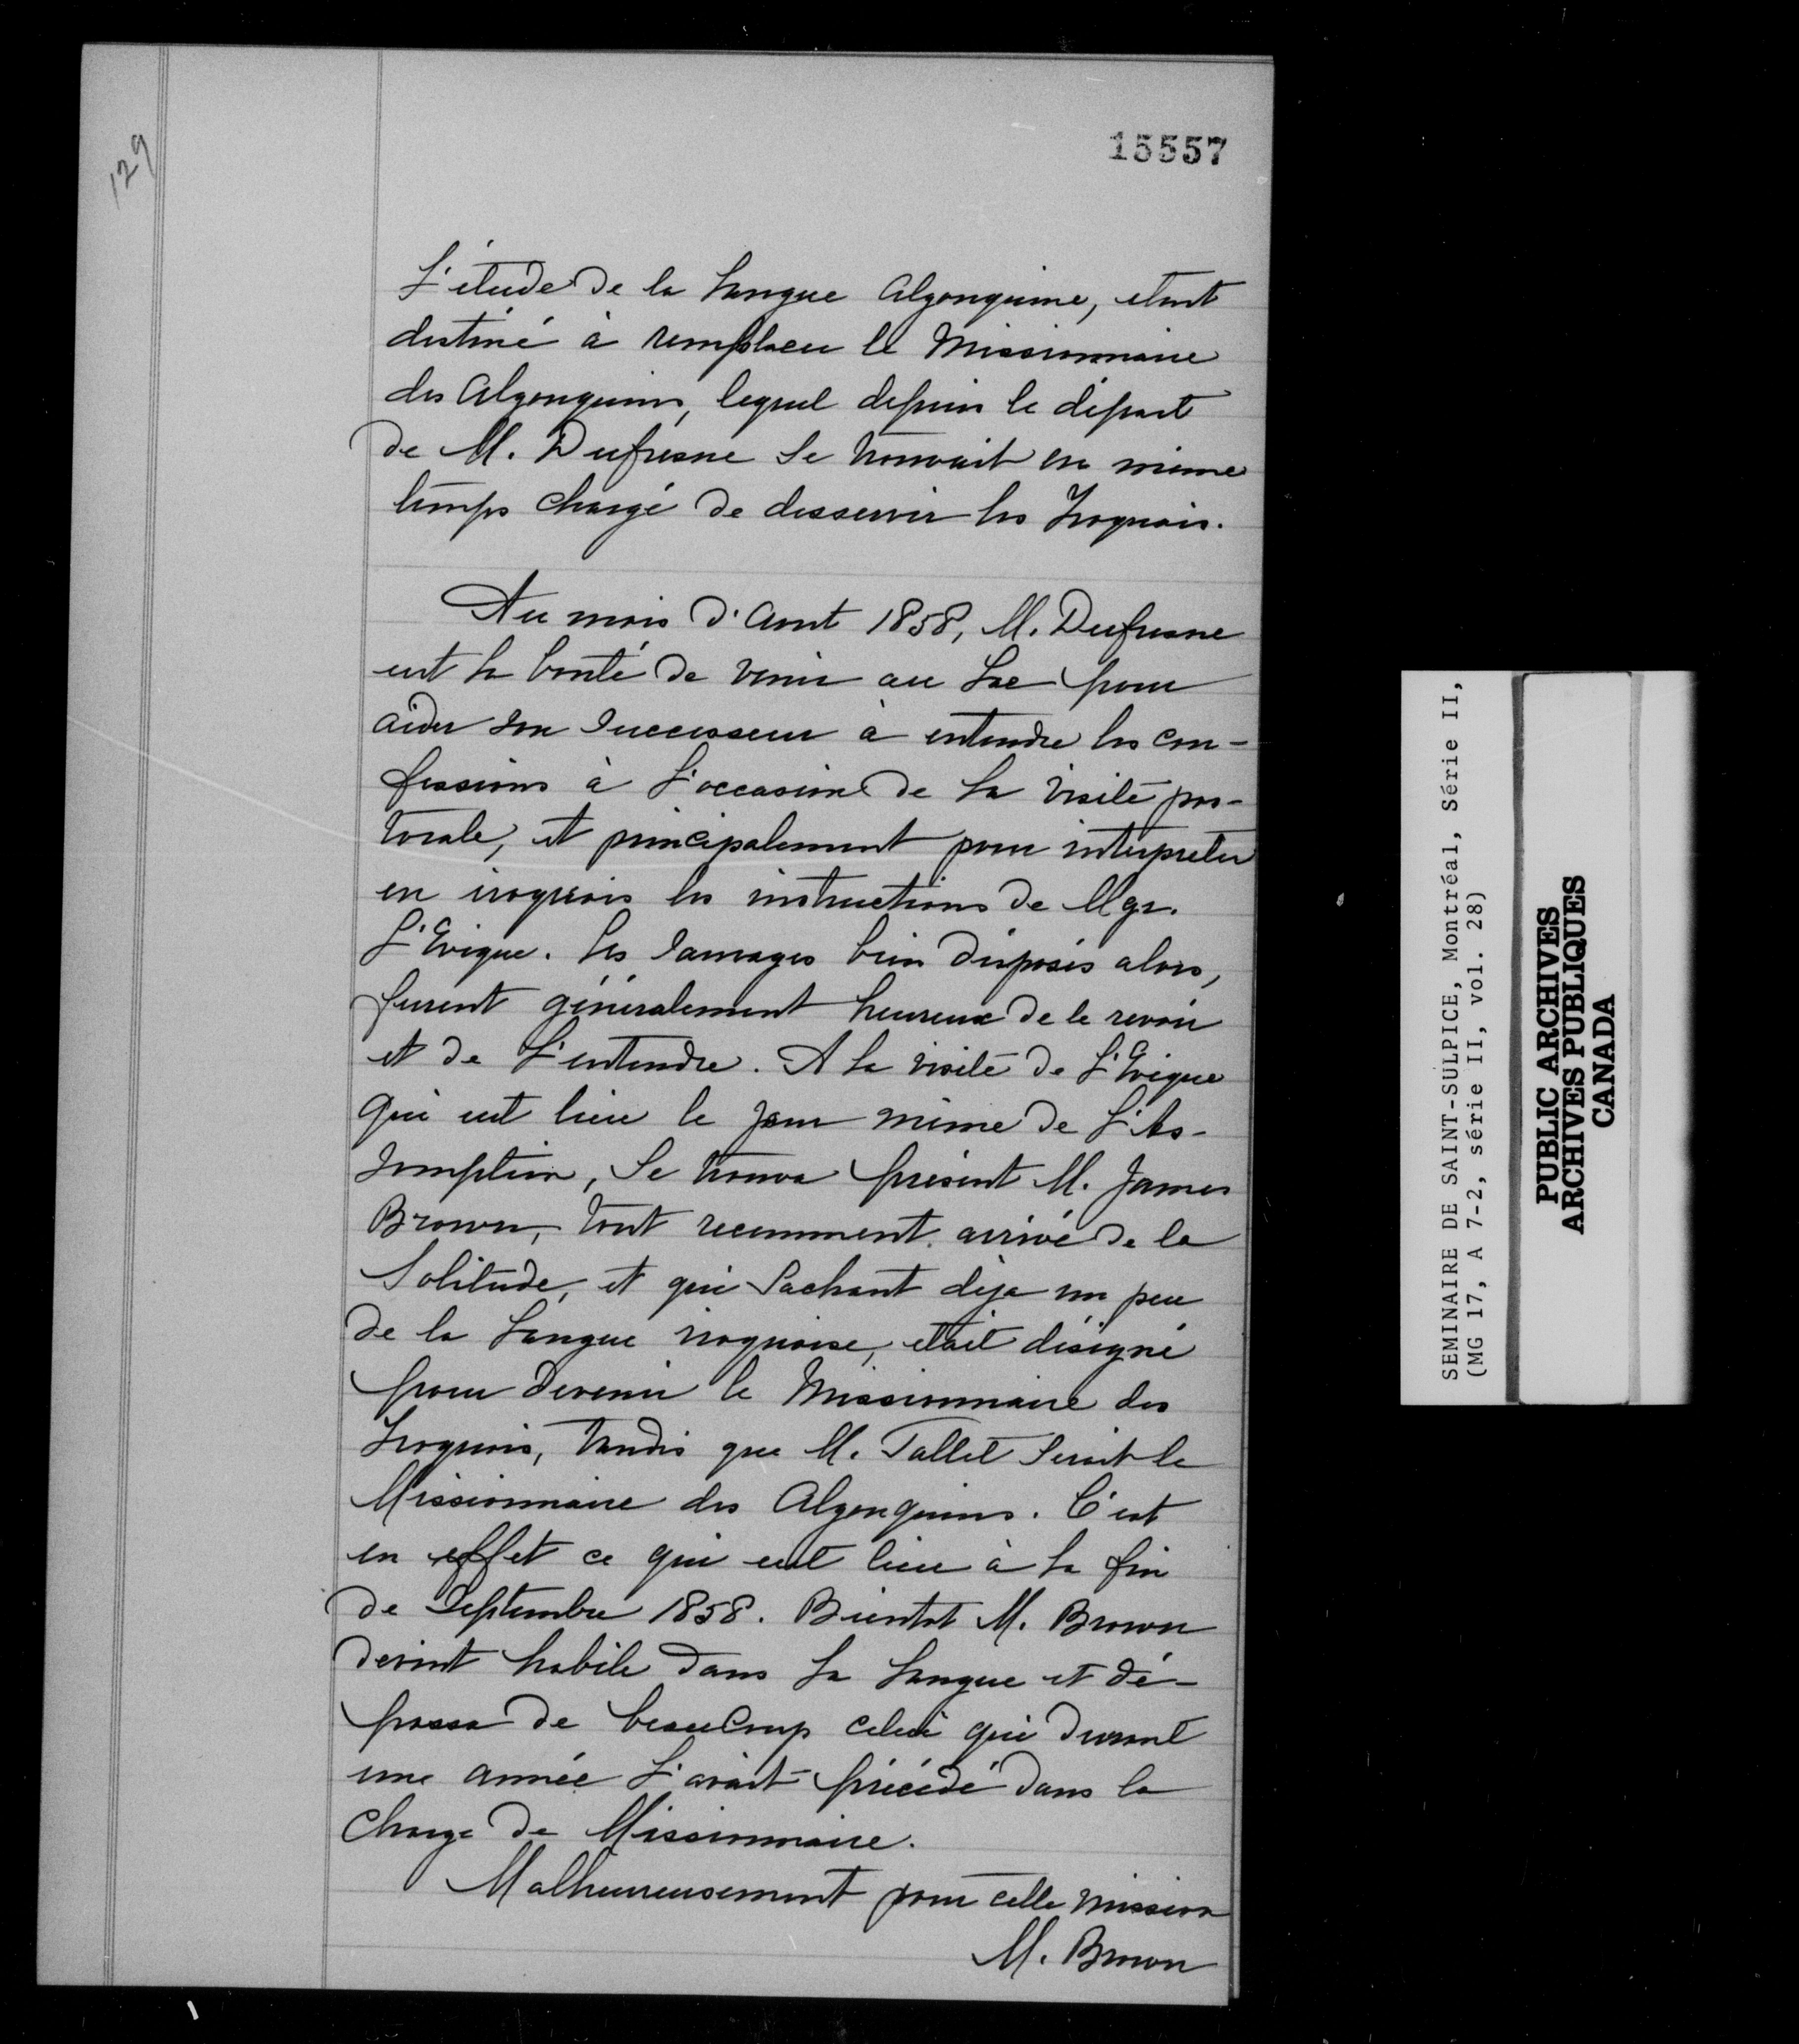 129
15557
L'étude de la langue Algonquine, etant
destiné à remplacer le Missionnaire
des Algonquins, lequel depuis le départ
de M. Dufresne se trouvait en même
temps chargé de desservir les Iroquois.
Au mois d'Aout 1858, M. Dufresne
eut la bonté de venir au Lac pour
aider son successeur à entendre les con-
fessions à l'occasion de la visite pas-
torale, et principalement pour interpreter
en iroquois les instructions de Mgr.
L'Evêque. Les sauvages bien disposés alors,
furent généralement heureux de le revoir
et de l'entendre. A la visite de l'Evêque
qui eut lieu le jour même de l'As-
somption, se trouva présent M. James
Brown, tout recemment arrivé de la
Solitude, et qui sachant déja un peu
de la langue iroquoise, etait désigné
pour devenir le Missionnaire des
Iroquois, tandis que M. Tallet serait le
Missionnaire des Algonquins. C'est
en effet ce qui eut lieu à la fin
de Septembre 1858. Bientot M. Brown
devint habile dans la langue et dé-
passa de beaucoup celui qui durant
une année l'avait précédé dans la
charge de Missionnaire.
Malheureusement pour cette mission
M. Brown
SEMINAIRE DE SAINT-SULPICE, Montréal, Série II,
(MG 17, A 7-2, série II, vol. 28)
PUBLIC ARCHIVES
ARCHIVES PUBLIQUES
CANADA